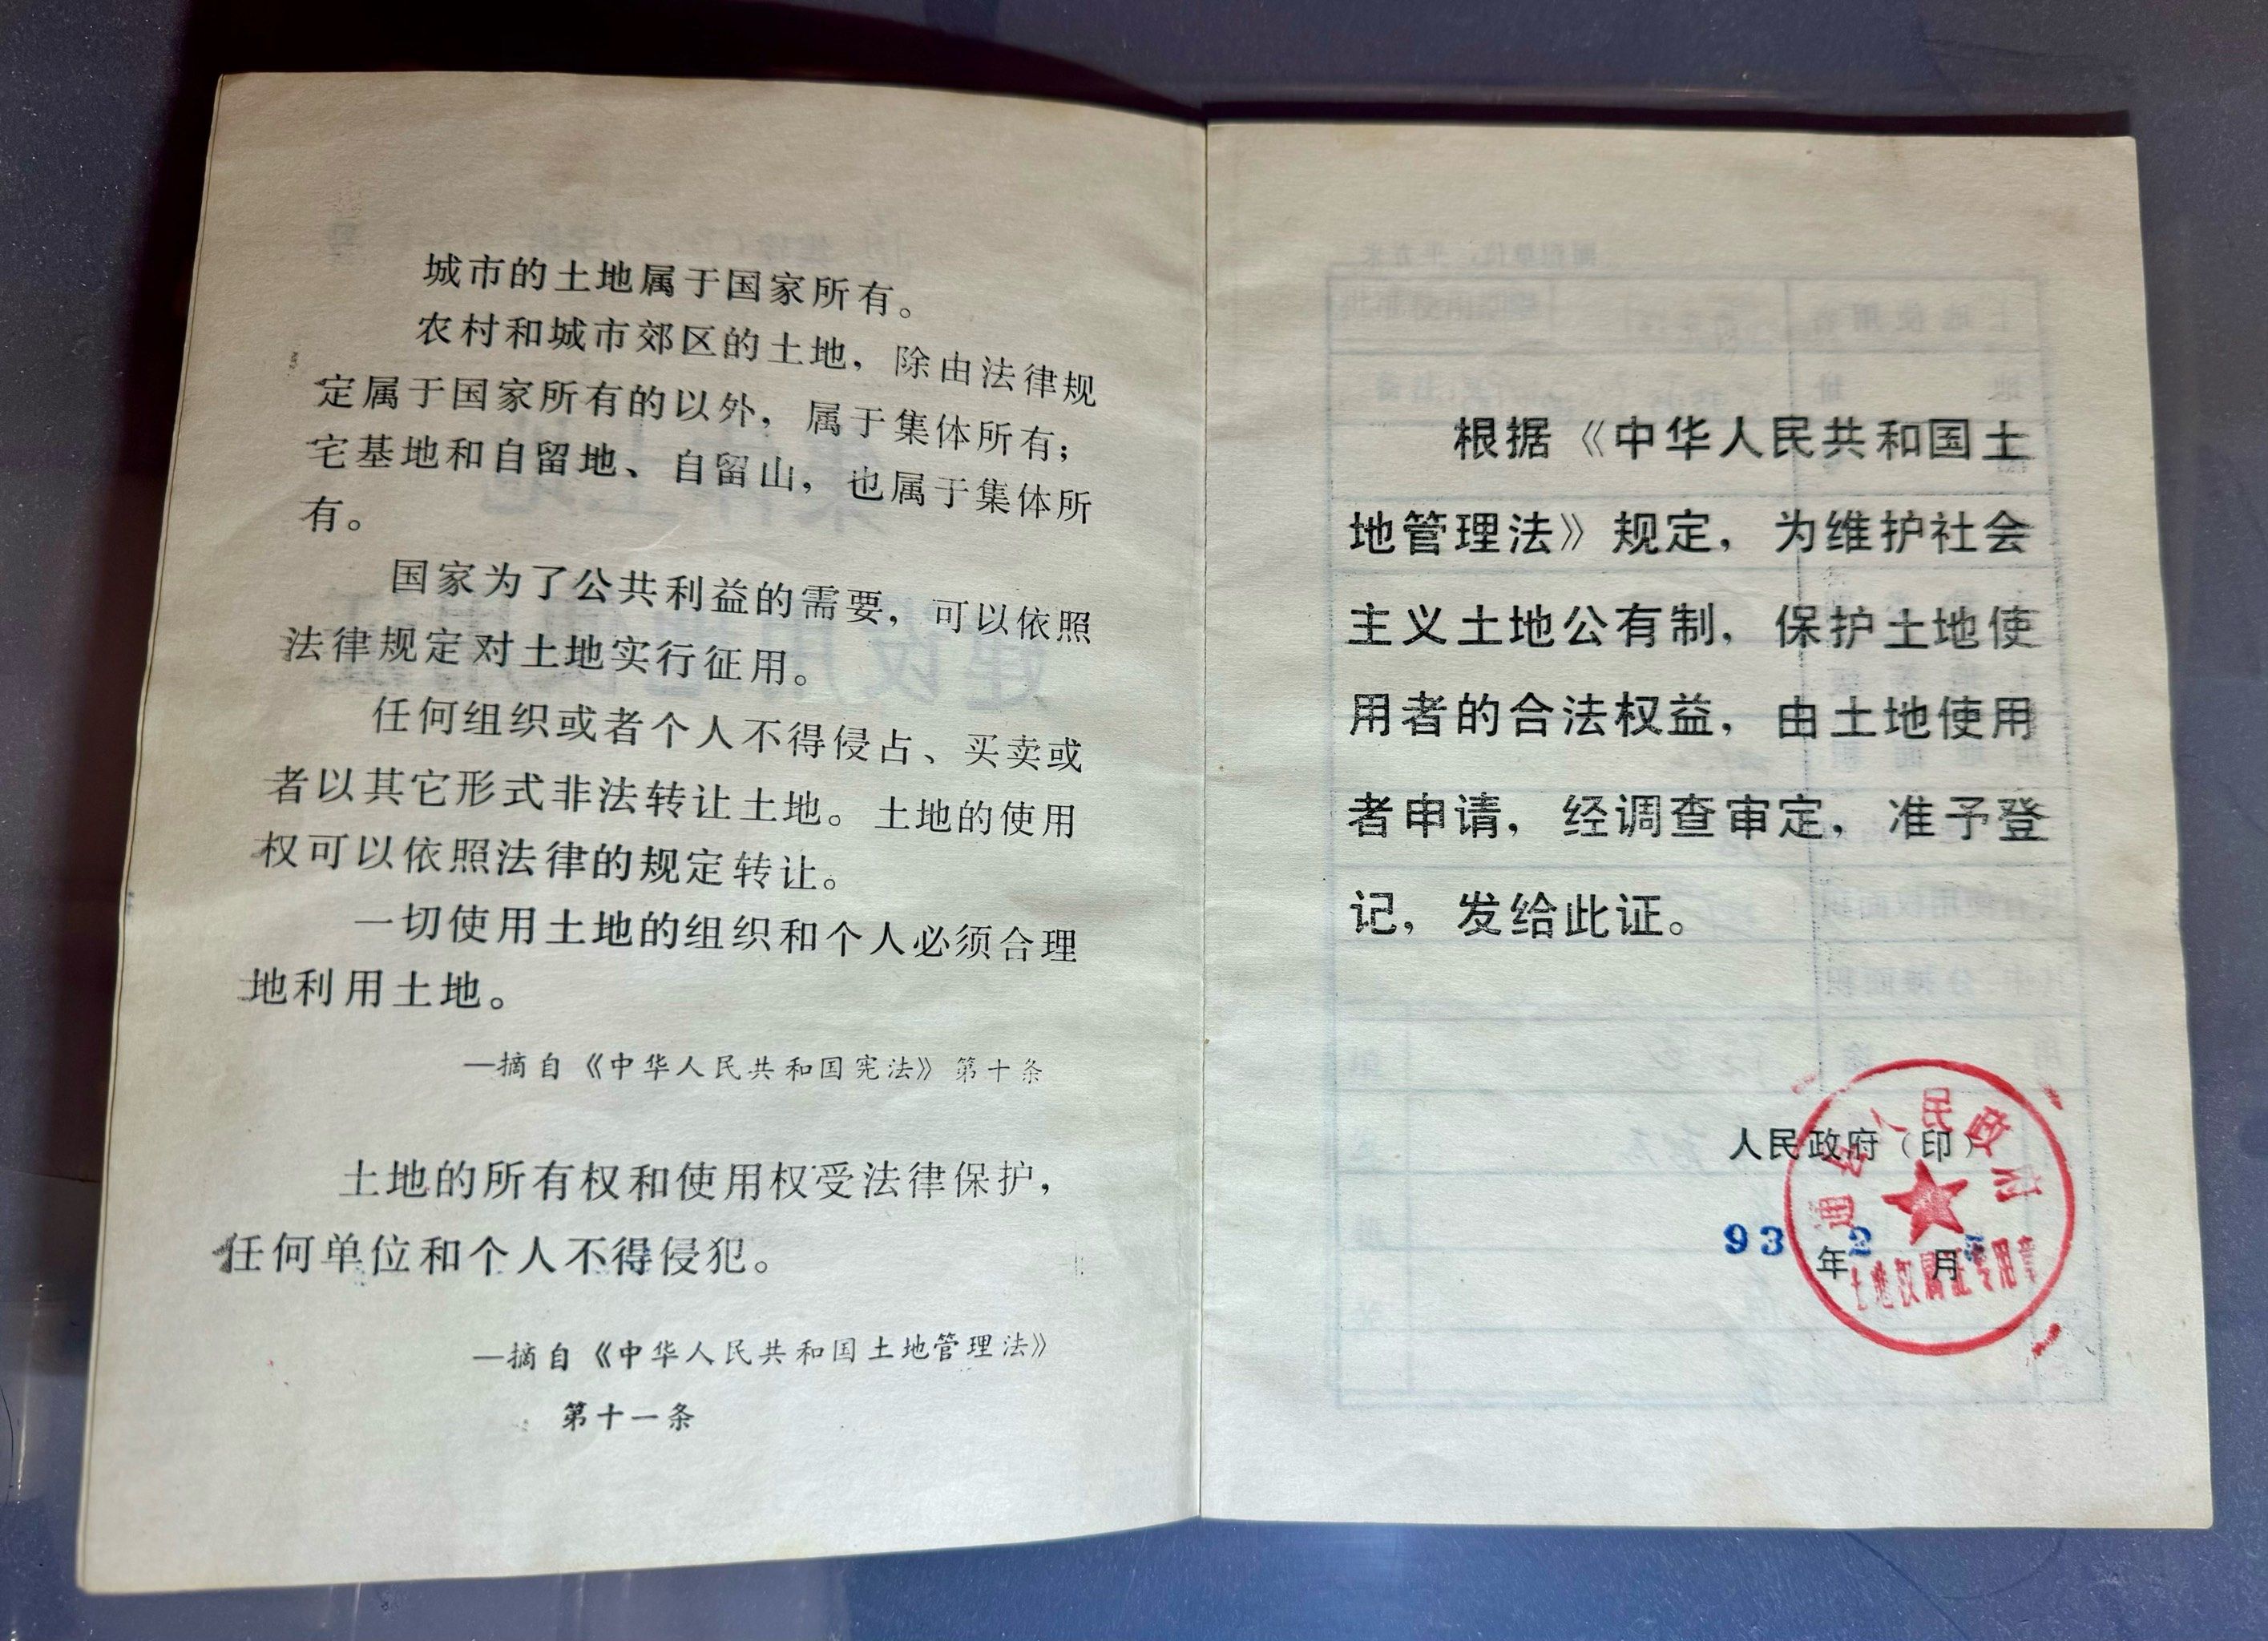 城市的土地属于国家所有。
农村和城市郊区的土地，除由法律规
定属于国家所有的以外，属于集体所有；
宅基地和自留地、自留山，也属于集体所
有。
国家为了公共利益的需要，可以依照
法律规定对土地实行征用。
任何组织或者个人不得侵占、买卖或
者以其它形式非法转让土地。土地的使用
权可以依照法律的规定转让。
一切使用土地的组织和个人必须合理
地利用土地。
—摘自《中华人民共和国宪法》第十条
土地的所有权和使用权受法律保护，
任何单位和个人不得侵犯。
—摘自《中华人民共和国土地管理法》
第十一条
根据《中华人民共和国土
地管理法》规定，为维护社会
主义土地公有制，保护土地使
用者的合法权益，由土地使用
者申请，经调查审定，准予登
记，发给此证。
人民政府（印）
93年2月
人民政
土地权属证专用章